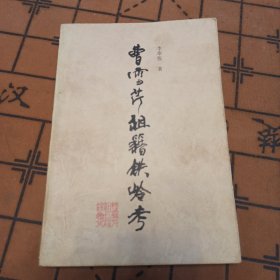 李奉佐 著
曹雪芹祖籍铁岭考
汉